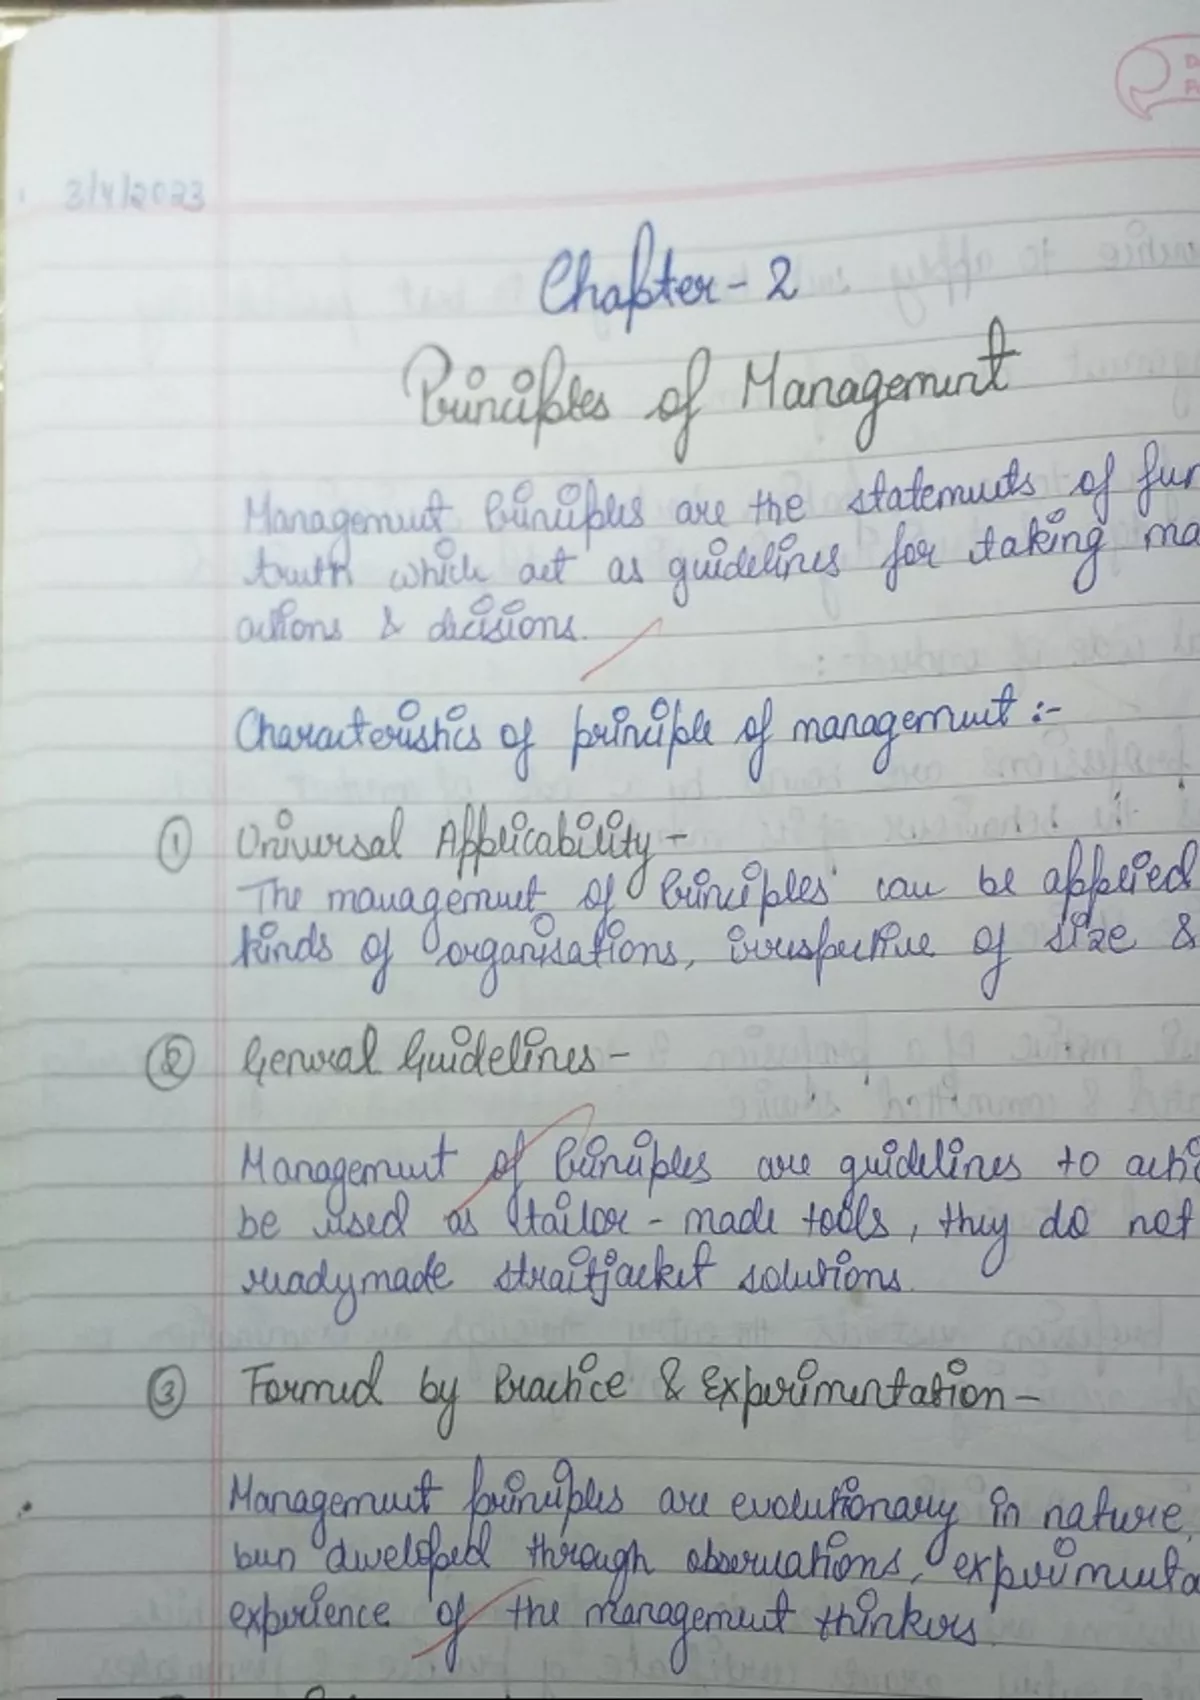 3/4/2023
Chapter - 2
Principles of Management
Management Principles are the statements of fun
truth which act as guidelines for taking ma
actions & decisions.
Characteristics of principle of management :-
① Universal Applicability -
The management of Principles can be applied
kinds of organisations, irrespective of size &
② General Guidelines -
Management of Principles are guidelines to acti
be used as tailor - made tools, they do not
readymade straitjacket solutions.
③ Formed by Practice & Experimentation -
Management principles are evolutionary in nature,
been dweloped through observations, experimenta
experience of the management thinkers